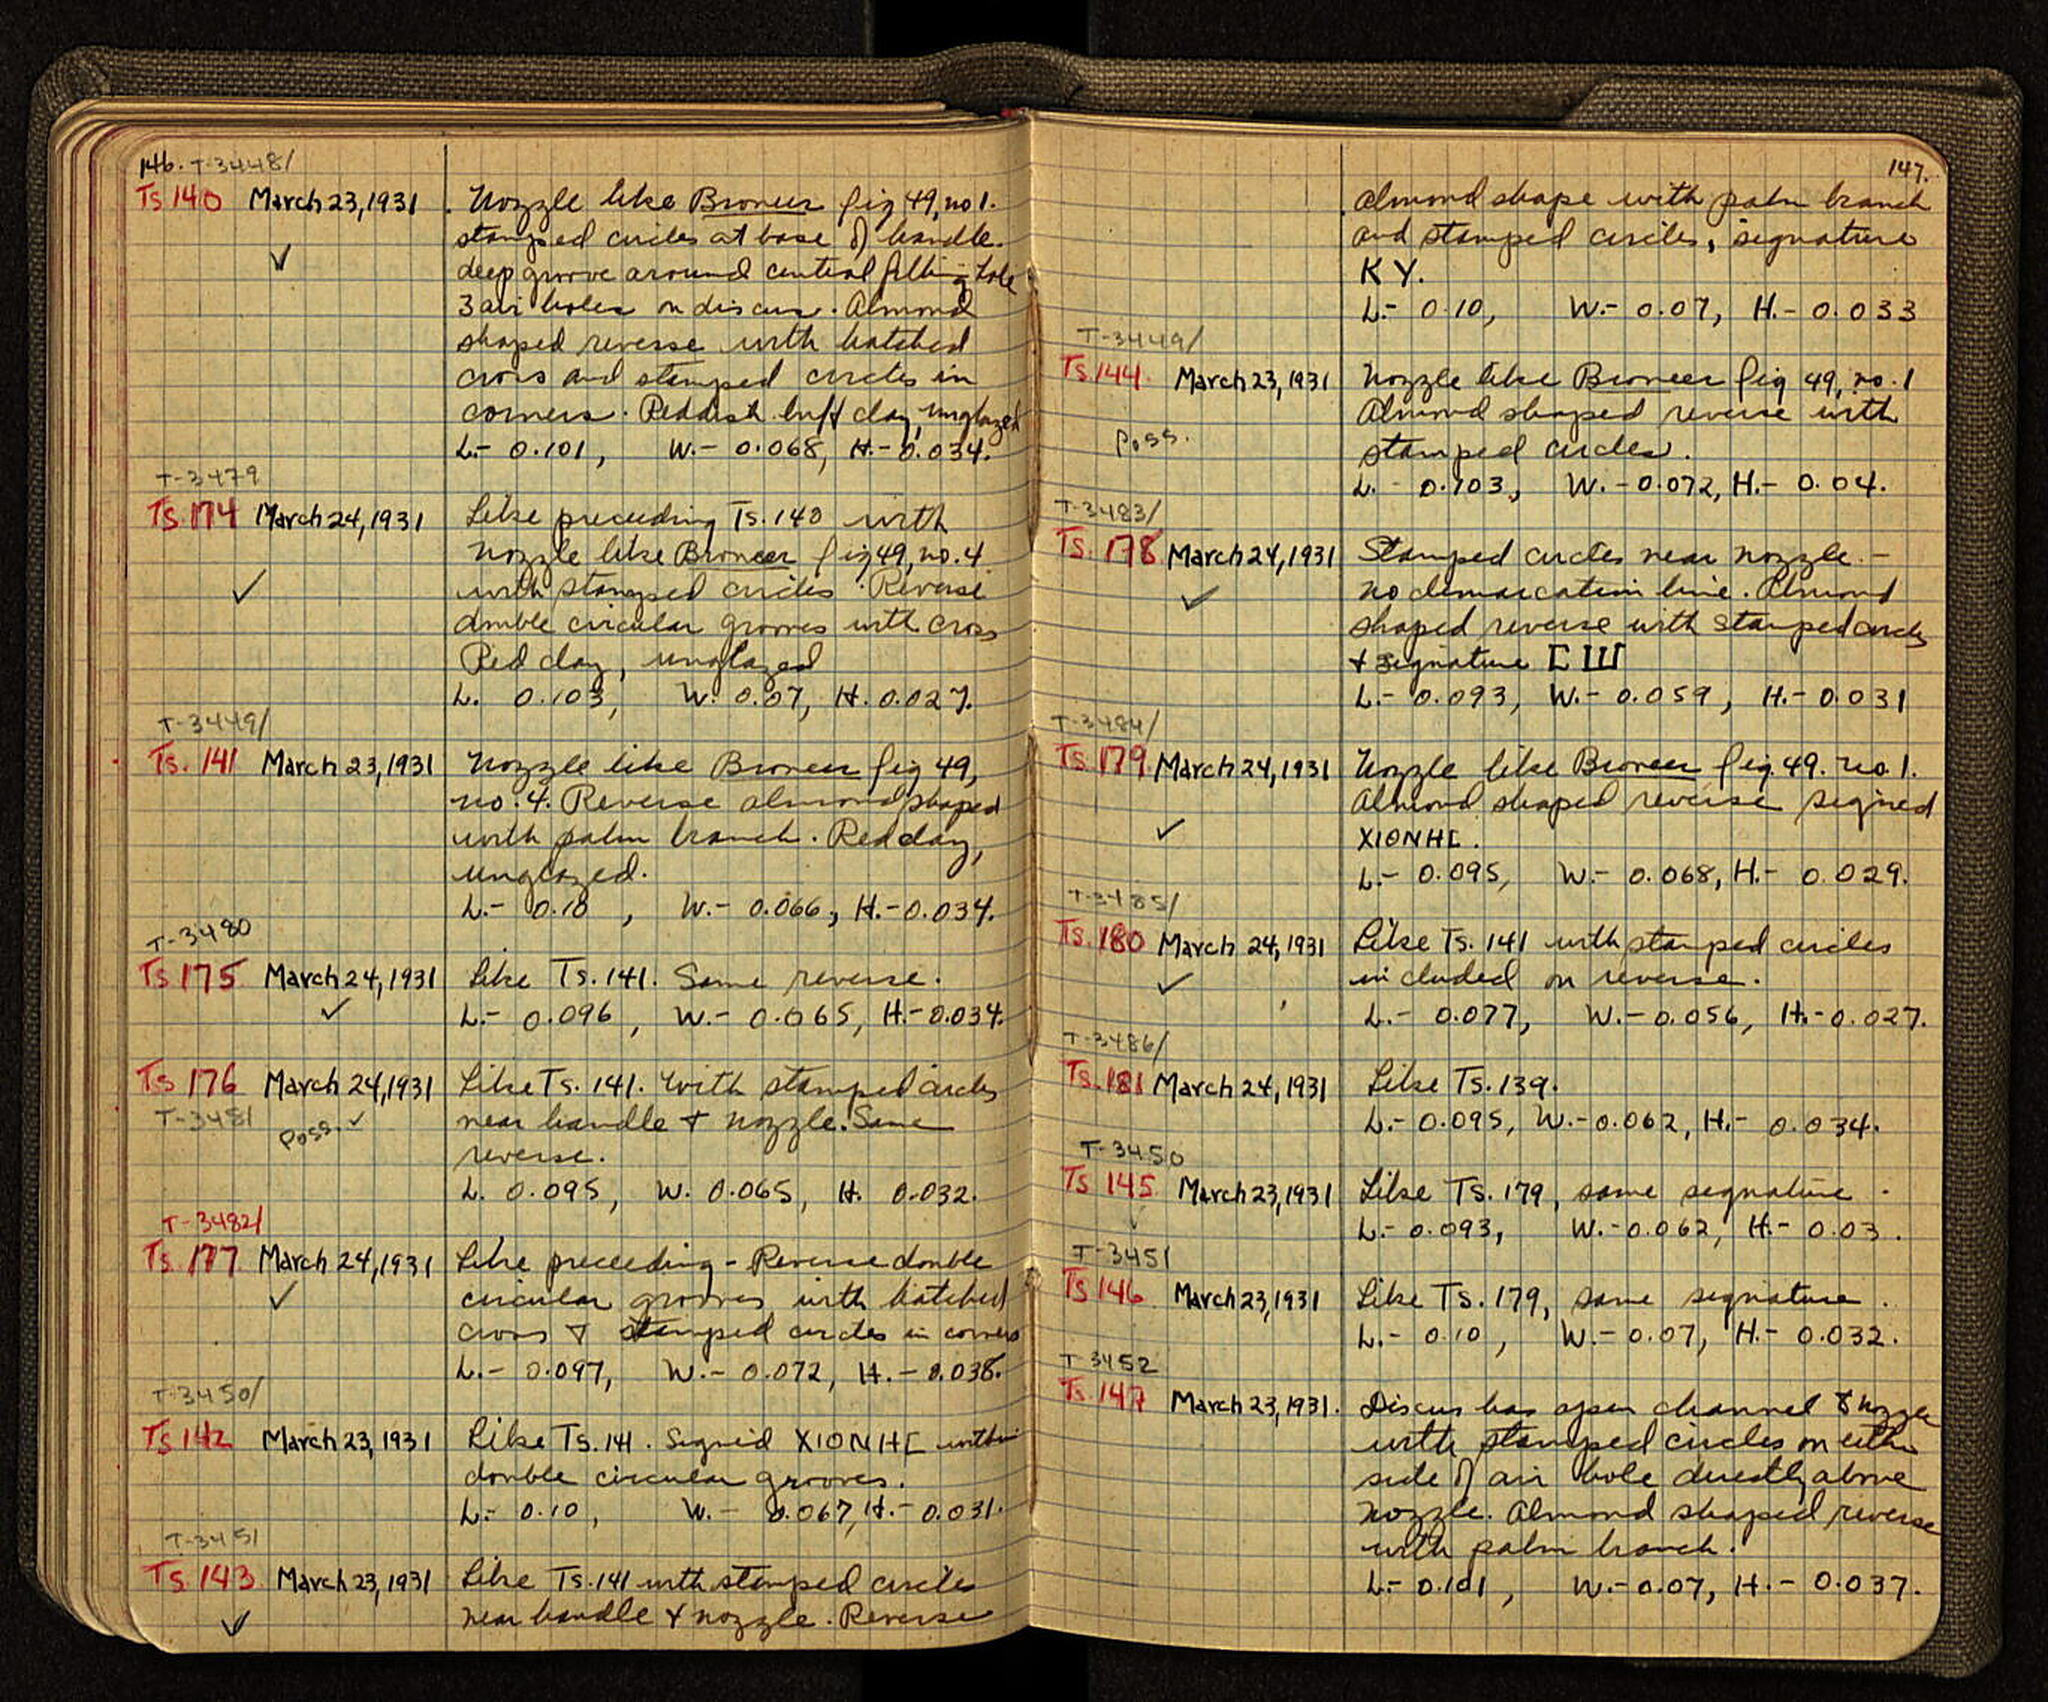 146. T-3448/
Ts 140 March 23, 1931 Nozzle like Broneer fig 49, no 1.
stamped circles at base of handle.
✓ deep groove around central filling hole
3 air holes on discus. Almond
shaped reverse with hatched
cross and stamped circles in
corners. Reddish buff clay, unglazed
L.- 0.101, W.- 0.068, H.- 0.034.
T-3479
Ts. 174 March 24, 1931 Like preceding Ts. 140 with
Nozzle like Broneer fig 49, no. 4
✓ with stamped circles. Reverse
double circular grooves with cross
Red clay, unglazed
L. 0.103, W. 0.07, H. 0.027.
T-3449/
Ts. 141 March 23, 1931 Nozzle like Broneer fig 49,
no. 4. Reverse almond shaped
with palm branch. Red clay,
unglazed.
L.- 0.10, W.- 0.066, H.- 0.034.
T-3480
Ts 175 March 24, 1931 Like Ts. 141. Same reverse.
✓ L.- 0.096, W.- 0.065, H.- 0.034.
Ts 176 March 24, 1931 Like Ts. 141. With stamped circles
T-3481 Poss. ✓ near handle & nozzle. Same
reverse.
L. 0.095, W. 0.065, H. 0.032.
T-3482/
Ts. 177 March 24, 1931 Like preceding - Reverse double
✓ circular grooves with hatched
cross & stamped circles in corners
L.- 0.097, W.- 0.072, H.- 0.038.
T-3450/
Ts 142 March 23, 1931 Like Ts. 141. Signed XIONHC within
double circular grooves.
L.- 0.10, W.- 0.067, H.- 0.031.
T-3451
Ts 143 March 23, 1931 Like Ts. 141 with stamped circles
✓ near handle & nozzle. Reverse
147.
almond shape with palm branch
and stamped circles, signature
KY.
L.- 0.10, W.- 0.07, H.- 0.033
T-3449/
Ts. 144 March 23, 1931 Nozzle like Broneer fig 49, no. 1
Almond shaped reverse with
Poss. stamped circles.
L.- 0.103, W.- 0.072, H.- 0.04.
T-3483/
Ts. 178 March 24, 1931 Stamped circles near nozzle. -
✓ no demarcation line. Almond
shaped reverse with stamped circles
& signature [Ш
L.- 0.093, W.- 0.059, H.- 0.031
T-3484/
Ts 179 March 24, 1931 Nozzle like Broneer fig. 49. no. 1.
Almond shaped reverse signed
✓ XIONHC.
L.- 0.095, W.- 0.068, H.- 0.029.
T-3485/
Ts. 180 March 24, 1931 Like Ts. 141 with stamped circles
✓ included on reverse.
L.- 0.077, W.- 0.056, H.- 0.027.
T-3486/
Ts. 181 March 24, 1931 Like Ts. 139.
L.- 0.095, W.- 0.062, H.- 0.034.
T-3450
Ts 145 March 23, 1931 Like Ts. 179, same signature.
L.- 0.093, W.- 0.062, H.- 0.03.
T-3451
Ts 146 March 23, 1931 Like Ts. 179, same signature.
L.- 0.10, W.- 0.07, H.- 0.032.
T 3452
Ts. 147 March 23, 1931. Discus has open channel & nozzle
with stamped circles on either
side of air hole directly above
nozzle. Almond shaped reverse
with palm branch.
L.- 0.101, W.- 0.07, H.- 0.037.